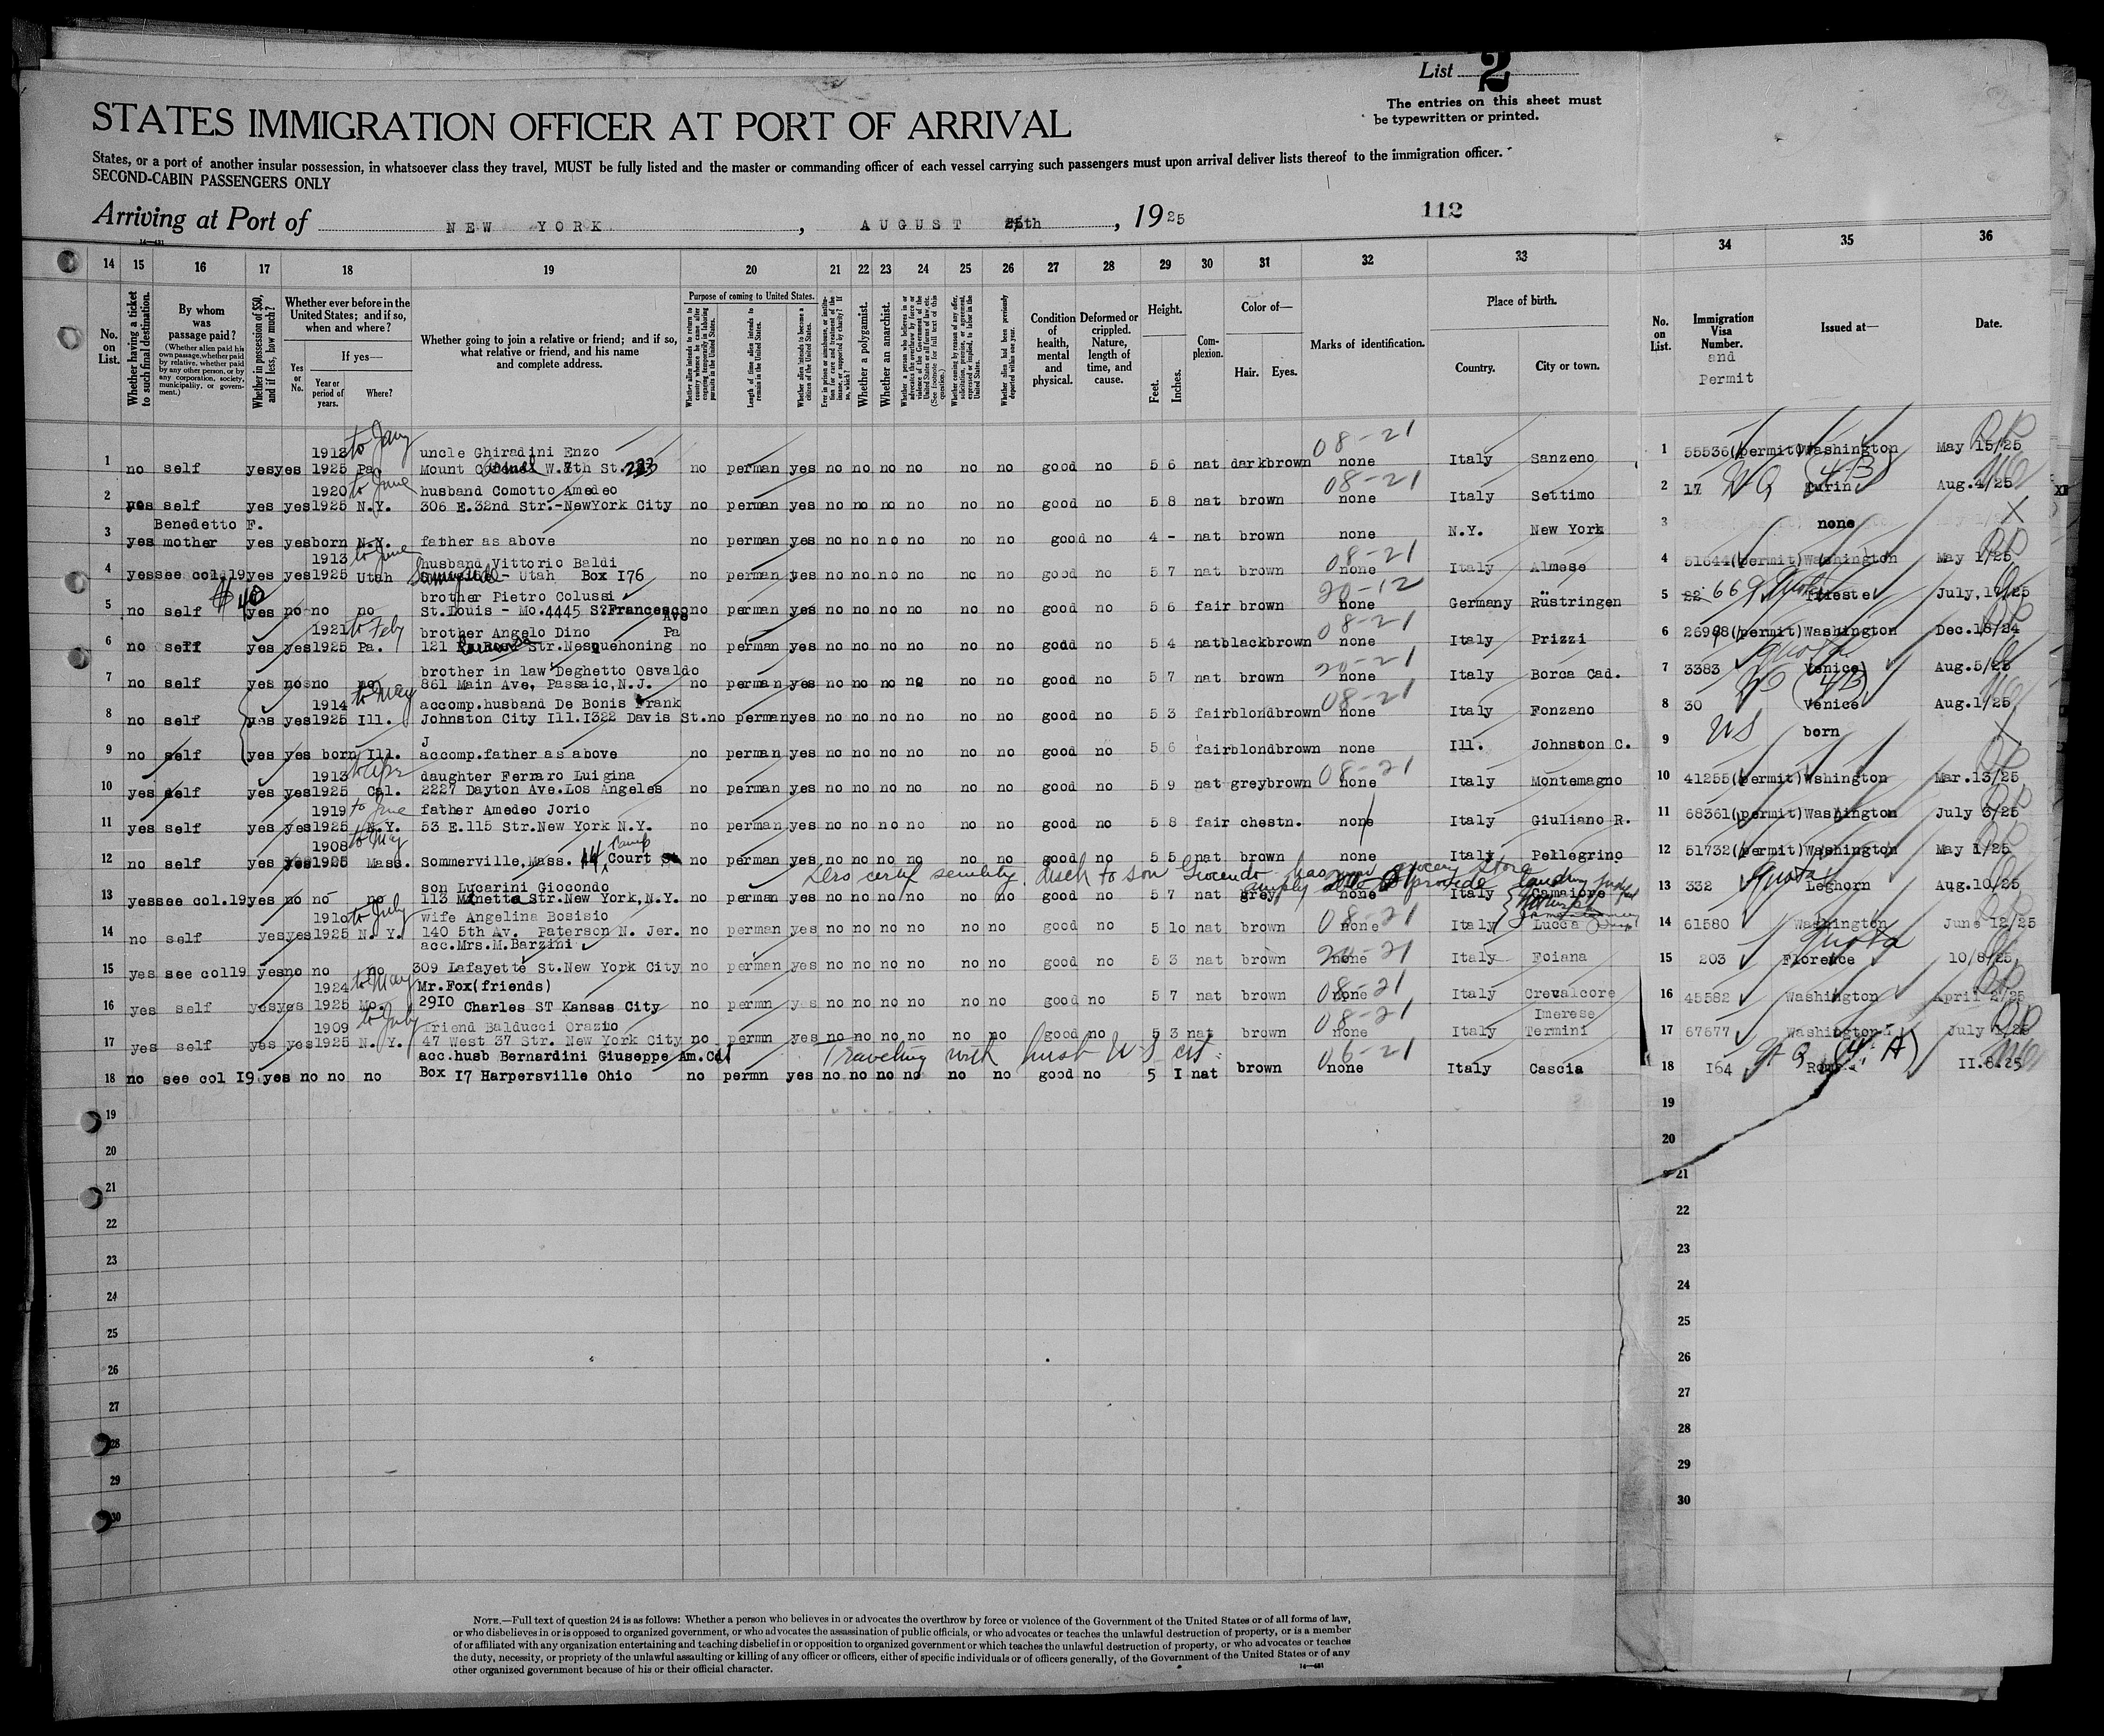 List 2
The entries on this sheet must
be typewritten or printed.
STATES IMMIGRATION OFFICER AT PORT OF ARRIVAL
States, or a port of another insular possession, in whatsoever class they travel, MUST be fully listed and the master or commanding officer of each vessel carrying such passengers must upon arrival deliver lists thereof to the immigration officer.
SECOND-CABIN PASSENGERS ONLY
Arriving at Port of NEW YORK, AUGUST 25th, 1925
112
14 15 16 17 18 19 20 21 22 23 24 25 26 27 28 29 30 31 32 33 34 35 36
No. on List.
Whether having a ticket to such final destination.
By whom was passage paid?
(Whether alien paid his own passage, whether paid by relative, whether paid by any other person, or by any corporation, society, municipality, or government.)
Whether in possession of $50, and if less, how much?
Whether ever before in the United States; and if so, when and where?
Yes or No.
If yes—
Year or period of years.
Where?
Whether going to join a relative or friend; and if so, what relative or friend, and his name and complete address.
Purpose of coming to United States.
Whether alien intends to return to country whence he came after engaging temporarily in laboring pursuits in the United States.
Length of time alien intends to remain in the United States.
Whether alien intends to become a citizen of the United States.
Ever in prison or almshouse, or institution for care and treatment of the insane, or supported by charity? If so, which?
Whether a polygamist.
Whether an anarchist.
Whether coming by reason of any offer, solicitation, promise, or agreement, expressed or implied, to labor in the United States.
Whether alien had been previously deported within one year.
Condition of health, mental and physical.
Deformed or crippled. Nature, length of time, and cause.
Height.
Feet. Inches.
Complexion.
Color of—
Hair. Eyes.
Marks of identification.
Place of birth.
Country. City or town.
No. on List.
Immigration Visa Number.
and
Permit
Issued at—
Date.
1912 to Jany uncle Ghiradini Enzo 08-21
1 no self yes yes 1925 Pa. Mount Carmel W. 7th St. 223 no perman yes no no no no no no good no 5 6 nat dark brown none Italy Sanzeno 1 55536(permit) Washington May 15/25
1920 to June husband Comotto Amedeo 08-21
2 yes self yes yes 1925 N.Y. 306 E.32nd Str.-NewYork City no perman yes no no no no no no good no 5 8 nat brown none Italy Settimo 2 17 NQ (4-B) Turin Aug.4/25
Benedetto F.
3 yes mother yes yes born N.Y. father as above no perman yes no no no no no no good no 4 - nat brown none N.Y. New York 3 none X
1913 to June husband Vittorio Baldi 08-21
4 yes see col.19 yes yes 1925 Utah Utah Box I76 no perman yes no no no no no no good no 5 7 nat brown none Italy Almese 4 51644(permit) Washington May 1/25
$40 brother Pietro Colussi 20-12
5 no self yes no no no St.Louis - Mo.4445 S?Francesco Ave no perman yes no no no no no no good no 5 6 fair brown none Germany Rüstringen 5 22 669 Quota Trieste July,17/25
1921 to Feby brother Angelo Dino Pa 08-21
6 no self yes yes 1925 Pa. 121 Str.Nesquehoning no perman yes no no no no no no good no 5 4 nat black brown none Italy Prizzi 6 26988(permit) Washington Dec.18/24
brother in law Deghetto Osvaldo 20-21
7 no self yes no no no 861 Main Ave, Passaic,N.J. no perman yes no no no no no no good no 5 7 nat brown none Italy Borca Cad. 7 3383 Quota Venice Aug.5/25
1914 to May accomp.husband De Bonis Frank 08-21
8 no self yes yes 1925 Ill. Johnston City Ill.I322 Davis St. no perman yes no no no no no no good no 5 3 fair blond brown none Italy Fonzano 8 30 NQ (4B) Venice Aug.1/25
9 no self yes yes born Ill. accomp.father as above no perman yes no no no no no no good no 5 6 fair blond brown none Ill. Johnston C. 9 US born X
1913 to Apr daughter Ferraro Luigina 08-21
10 yes self yes yes 1925 Cal. 2227 Dayton Ave.Los Angeles no perman yes no no no no no no good no 5 9 nat grey brown none Italy Montemagno 10 41255(permit) Wshington Mar.13/25
1919 to June father Amedeo Jorio
11 yes self yes yes 1925 N.Y. 53 E.115 Str.New York N.Y. no perman yes no no no no no no good no 5 8 fair chestn. none Italy Giuliano R. 11 68361(permit) Washington July 3/25
1908 to May
12 no self yes yes 1925 Mass. Sommerville,Mass. 44 Court St no perman yes no no no no no no good no 5 5 nat brown none Italy Pellegrino 12 51732(permit) Washington May 1/25
senility. disch to son Giocondo has own grocery store
son Lucarini Giocondo amply able to provide
13 yes see col.19 yes no no no 113 Minetta Str.New York,N.Y. no perman yes no no no no no no good no 5 7 nat grey none Italy Camaiore 13 332 Quota Leghorn Aug.10/25
1910 to July wife Angelina Bosisio 08-21
14 no self yes yes 1925 N.Y. 140 5th Av. Paterson N. Jer. no perman yes no no no no no no good no 5 10 nat brown none Italy Lucca 14 61580 Washington June 12/25
acc.Mrs.M.Barzini
15 yes see col19 yes no no no 309 Lafayette St.New York City no perman yes no no no no no no good no 5 3 nat brown none 20-21 Italy Foiana 15 203 Quota Florence 10/8/25
1924 to May Mr.Fox(friends) 08-21
16 yes self yes yes 1925 Mo. 29I0 Charles ST Kansas City no permn yes no no no no no no good no 5 7 nat brown none Italy Crevalcore 16 45582 Washington April 2/25
1909 to July friend Balducci Orazio 08-21 Imerese
17 yes self yes yes 1925 N.Y. 47 West 37 Str. New York City no permn yes no no no no no no good no 5 3 nat brown none Italy Termini 17 67677 Washington July 1/25
acc.husb Bernardini Giuseppe Am.Cit Traveling with husb US cit. 06-21
18 no see col I9 yes no no no Box I7 Harpersville Ohio no permn yes no no no no no no good no 5 I nat brown none Italy Cascia 18 I64 (4 A) II.8.25
19 19
20 20
21 21
22 22
23 23
24 24
25 25
26 26
27 27
28 28
29 29
30 30
NOTE.—Full text of question 24 is as follows: Whether a person who believes in or advocates the overthrow by force or violence of the Government of the United States or of all forms of law,
or who disbelieves in or is opposed to organized government, or who advocates the assassination of public officials, or who advocates or teaches the unlawful destruction of property, or is a member
of or affiliated with any organization entertaining and teaching disbelief in or opposition to organized government or which teaches the unlawful destruction of property, or who advocates or teaches
the duty, necessity, or propriety of the unlawful assaulting or killing of any officer or officers, either of specific individuals or of officers generally, of the Government of the United States or of any
other organized government because of his or their official character.